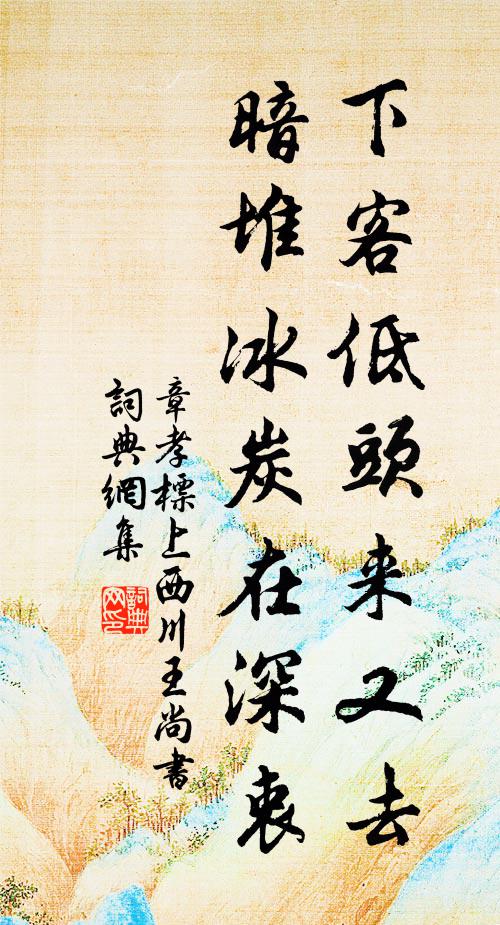 下客低頭来又去
暗堆冰炭在深衷
章孝標上西川王尚書
詞典網集
詞典網印